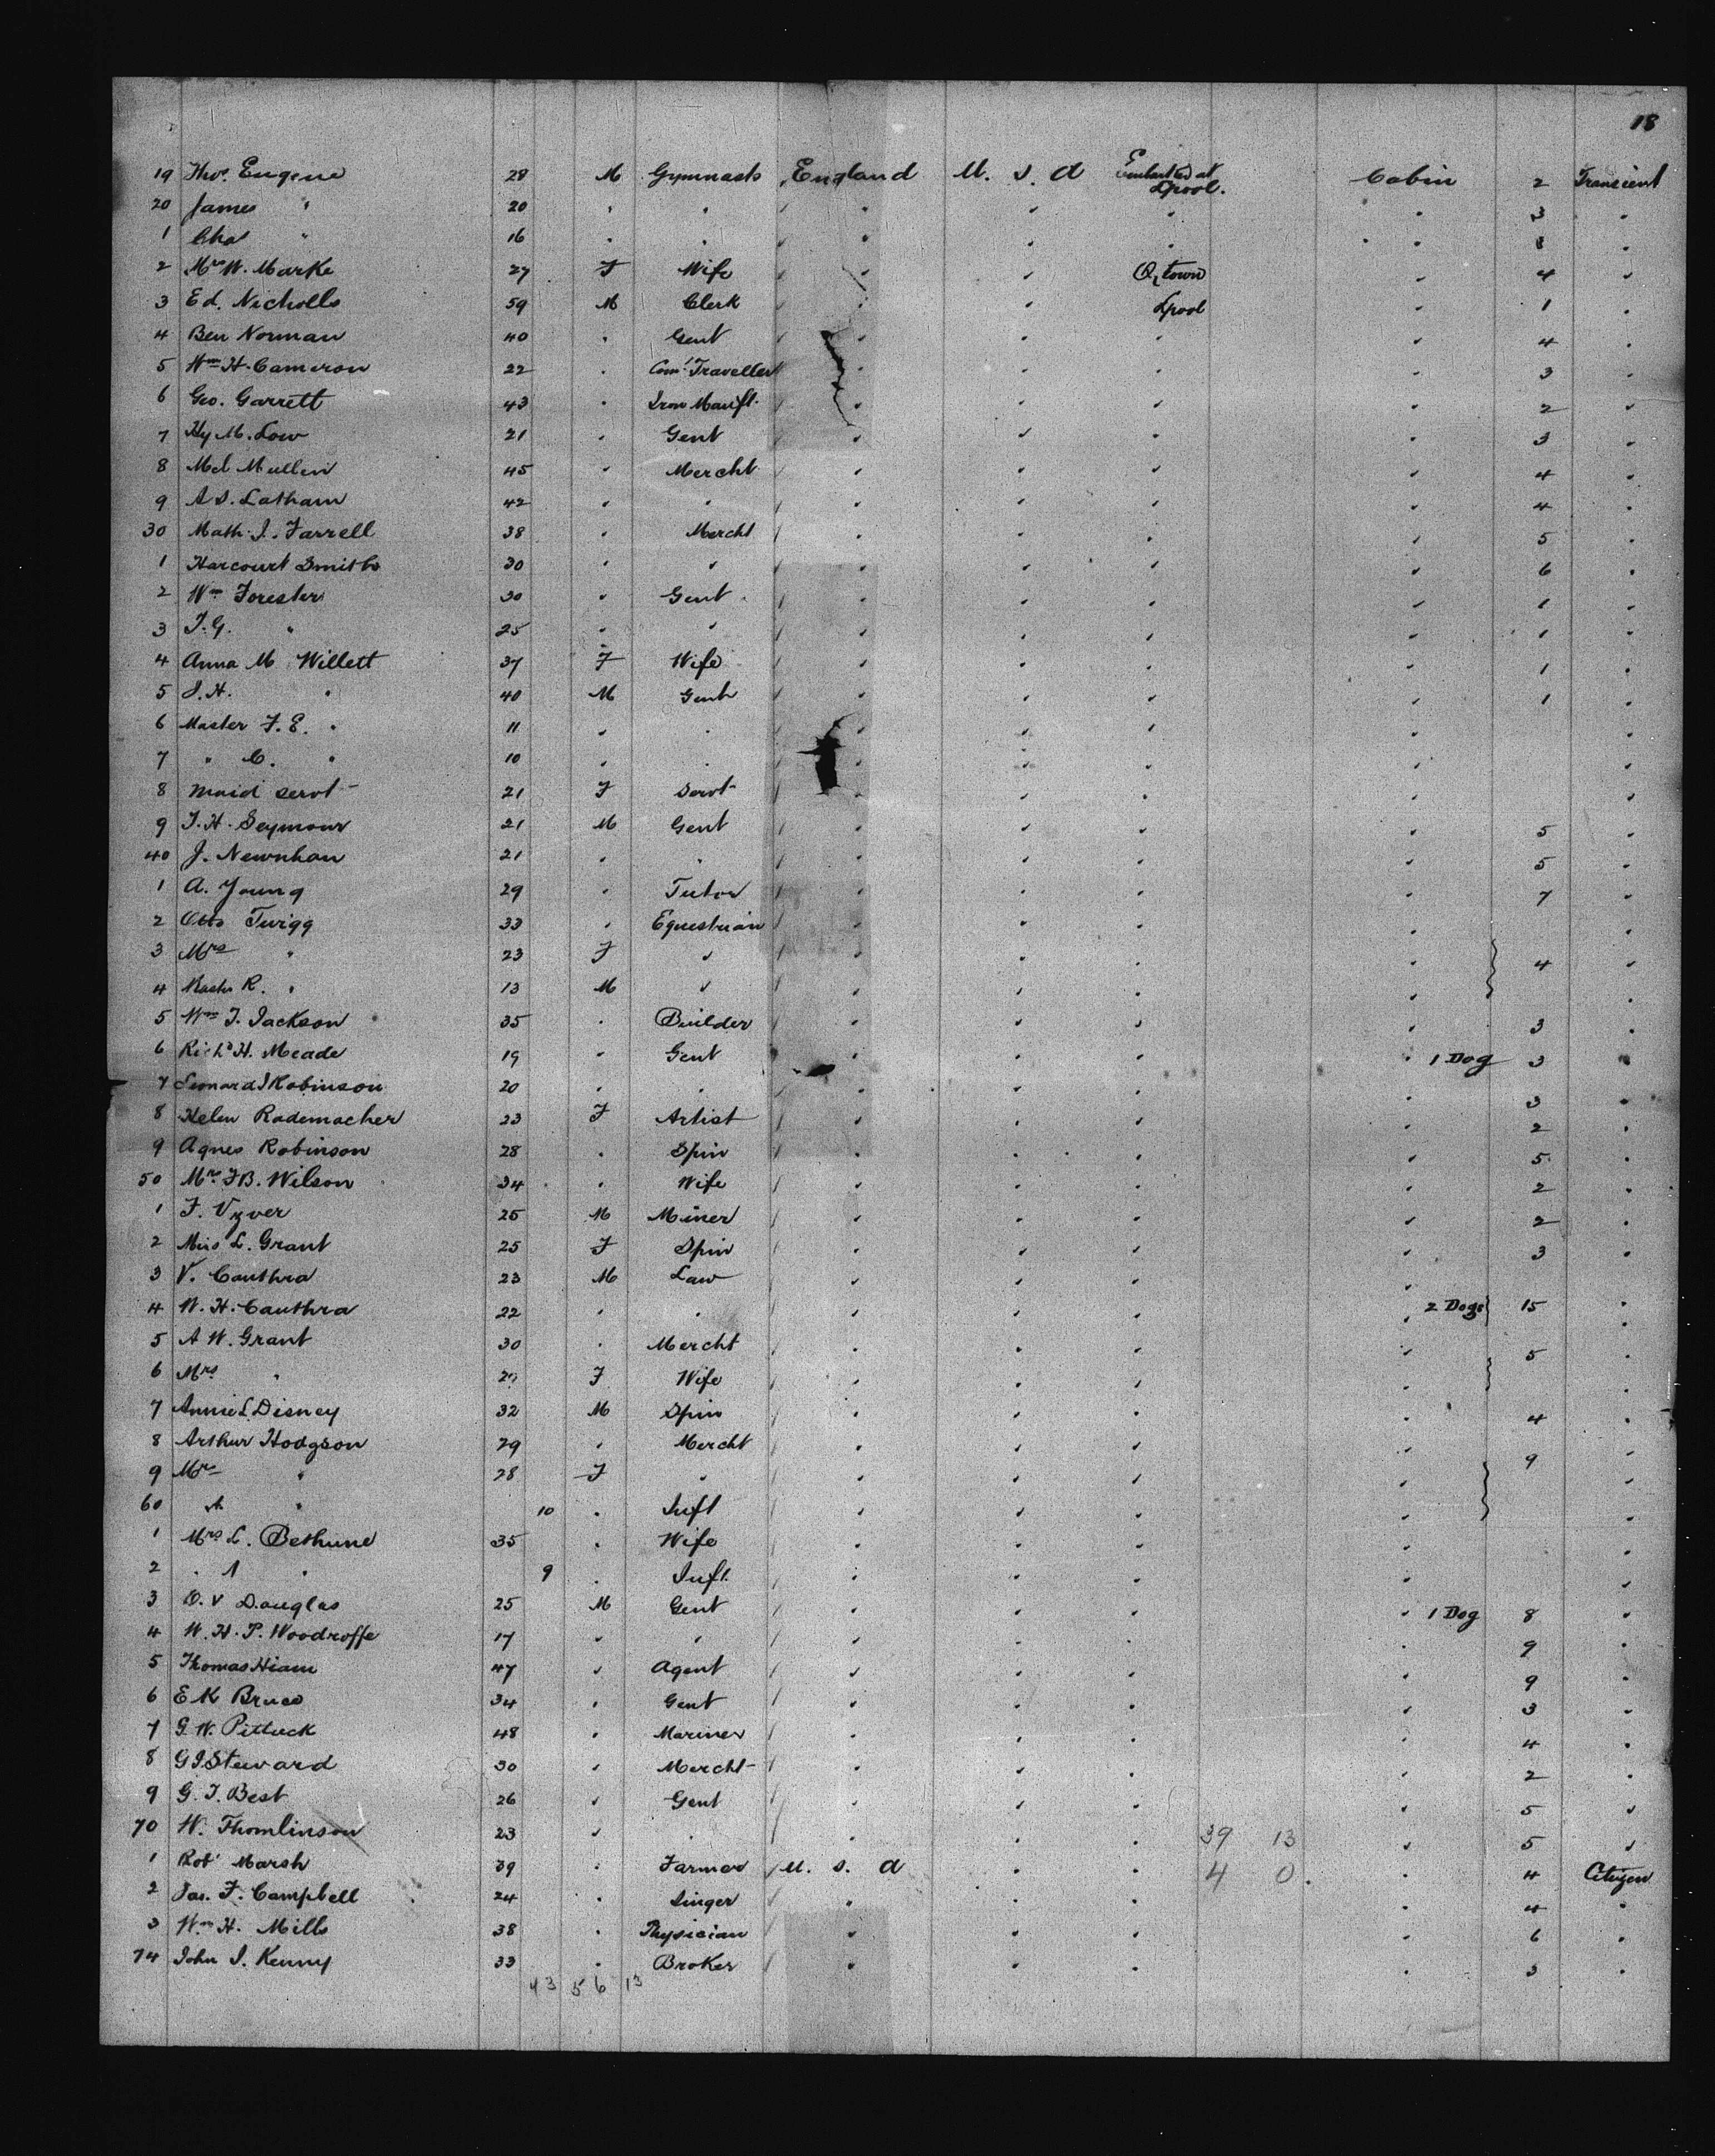 18
19 Thos. Eugene 28 M Gymnasts England U. S. A Embarked at Lpool. Cabin 2 Transient
20 James " 20 " " " " " " " 3 "
1 Chas " 16 " " " " " " " 3 "
2 Mrs W. Marke 27 F Wife " " Q. town " 4 "
3 Ed. Nicholls 59 M Clerk " " Lpool " 1 "
4 Ben Norman 40 " Gent " " " " 4 "
5 Wm H. Cameron 22 " Com. Traveller " " " " 3 "
6 Geo. Garrett 43 " Iron Manfr. " " " " 2 "
7 Hy M. Low 21 " Gent " " " " 3 "
8 Mullin 45 " Mercht " " " " 4 "
9 A S. Latham 42 " " " " " " 4 "
30 Math. J. Farrell 38 " Mercht " " " " 5 "
1 Harcourt Smith 30 " " " " " " 6 "
2 Wm Forester 30 " Gent " " " " 1 "
3 T. G. " 25 " " " " " " 1 "
4 Anna M Willett 37 F Wife " " " " 1 "
5 J. H. " 40 M Gent " " " " 1 "
6 Master F. E. " 11 " " " " " " "
7 " C. " 10 " " " " " " "
8 Maid Servt 21 F Servt " " " " "
9 T. H. Seymour 21 M Gent " " " " 5 "
40 J. Newnham 21 " " " " " " 5 "
1 A. Young 29 " Tutor " " " " 7 "
2 Otto Twigg 33 " Equestrian " " " " "
3 Mrs " 23 F " " " " " 4 "
4 Mastr R. " 13 M " " " " " "
5 Wm J. Jackson 35 " Builder " " " " 3 "
6 Richd H. Meade 19 " Gent " " " " 1 Dog 3 "
7 Leonard J Robinson 20 " " " " " " 3 "
8 Helen Rademacher 23 F Artist " " " " 2 "
9 Agnes Robinson 28 " Spin " " " " 5 "
50 Mrs F B. Wilson 34 " Wife " " " " 2 "
1 F. Vyver 25 M Miner " " " " 2 "
2 Miss L. Grant 25 F Spin " " " " 3 "
3 V. Cauthra 23 M Law " " " "
4 W. H. Cauthra 22 " " " " " " 2 Dogs 15 "
5 A W. Grant 30 " Mercht " " " " 5 "
6 Mrs " F Wife " " " " "
7 Annie L. Disney 32 M Spin " " " " 4 "
8 Arthur Hodgson 29 " Mercht " " " " 9 "
9 Mrs " 28 F " " " " " "
60 A. " 10 " Inft " " " "
1 Mrs L. Bethune 35 " Wife " " " " "
2 " A " 9 " Inft. " " " " "
3 O. V Douglas 25 M Gent " " " " 1 Dog 8 "
4 W. H. P. Woodroffe 17 " " " " " " 9 "
5 Thomas Hiam 47 " Agent " " " " 9 "
6 E K Bruce 34 " Gent " " " " 3 "
7 G. W. Pittuck 48 " Mariner " " " " 4 "
8 G J. Steward 30 " Mercht " " " " 2 "
9 G. T. Best 26 " Gent " " " " 5 "
70 W. Thomlinson 23 " " " " " 39 13 " 5 "
1 Robt Marsh 39 " Farmer U. S. A " " 4 0 " 4 Citizen
2 Jas. F. Campbell 24 " Singer " " " " 4 "
3 Wm H. Mills 38 " Physician " " " " 6 "
74 John J. Kenny 33 " Broker " " " " 3 "
43 56 13